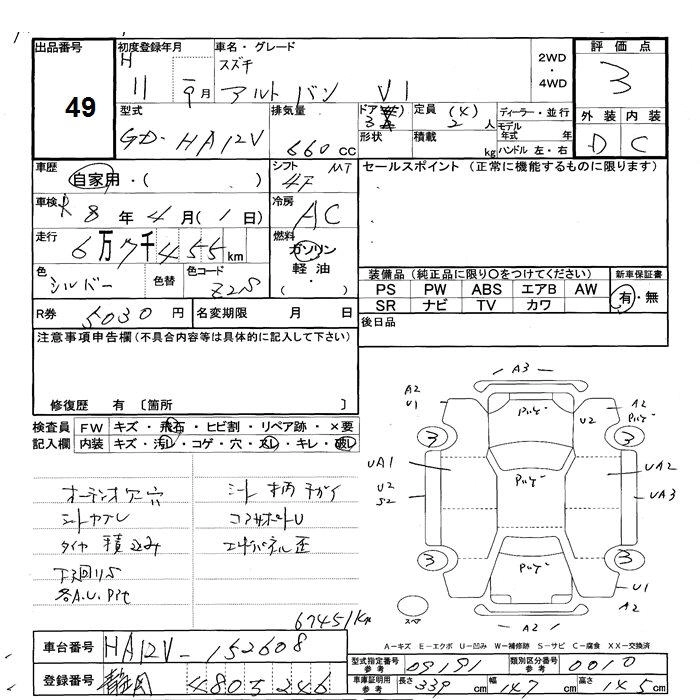 出品番号
49
初度登録年月
H 11年 9月
車名・グレード
スズキ
アルト バン V1
2WD
・
4WD
評価点
3
外装 内装
D C
型式
GD-HA12V
排気量
660 cc
ドア
3
形状
定員 (4)
2 人
積載
kg
ディーラー・並行
モデル年式 年
ハンドル 左・右
車歴
自家用・( )
シフト MT
4F
セールスポイント (正常に機能するものに限ります)
車検
R 8年 4月(1日)
冷房
AC
走行
6万7千455 km
燃料
ガソリン
軽油
( ・ )
色
シルバー
色替
色コード
Z2S
装備品 (純正品に限り○をつけてください)
PS PW ABS エアB AW
SR ナビ TV カワ
新車保証書
有・無
R券 5030 円
名変期限 月 日
後日品
注意事項申告欄(不具合内容等は具体的に記入して下さい)
修復歴 有 〔箇所 〕
検査員記入欄
FW キズ・飛石・ヒビ割・リペア跡・×要
内装 キズ・汚レ・コゲ・穴・スレ・キレ・破レ
オーディオ欠穴
シートカブレ
タイヤ積込み
下廻りS
各A.U.Pit
シート柄チガイ
コアサポートU
エンドパネル歪
67451Km
A3
A2
U1
U2
A2
3
3
UA1
U2
S2
UA2
UA3
3
3
U1
A2
A2
スペア
A-キズ E-エクボ U-凹み W-補修跡 S-サビ C-腐食 XX-交換済
車台番号 HA12V-152608
登録番号 静岡 480 う 246
型式指定番号 参考 09191
類別区分番号 参考 0010
車庫証明用 参考
長さ 339 cm
幅 147 cm
高さ 145 cm